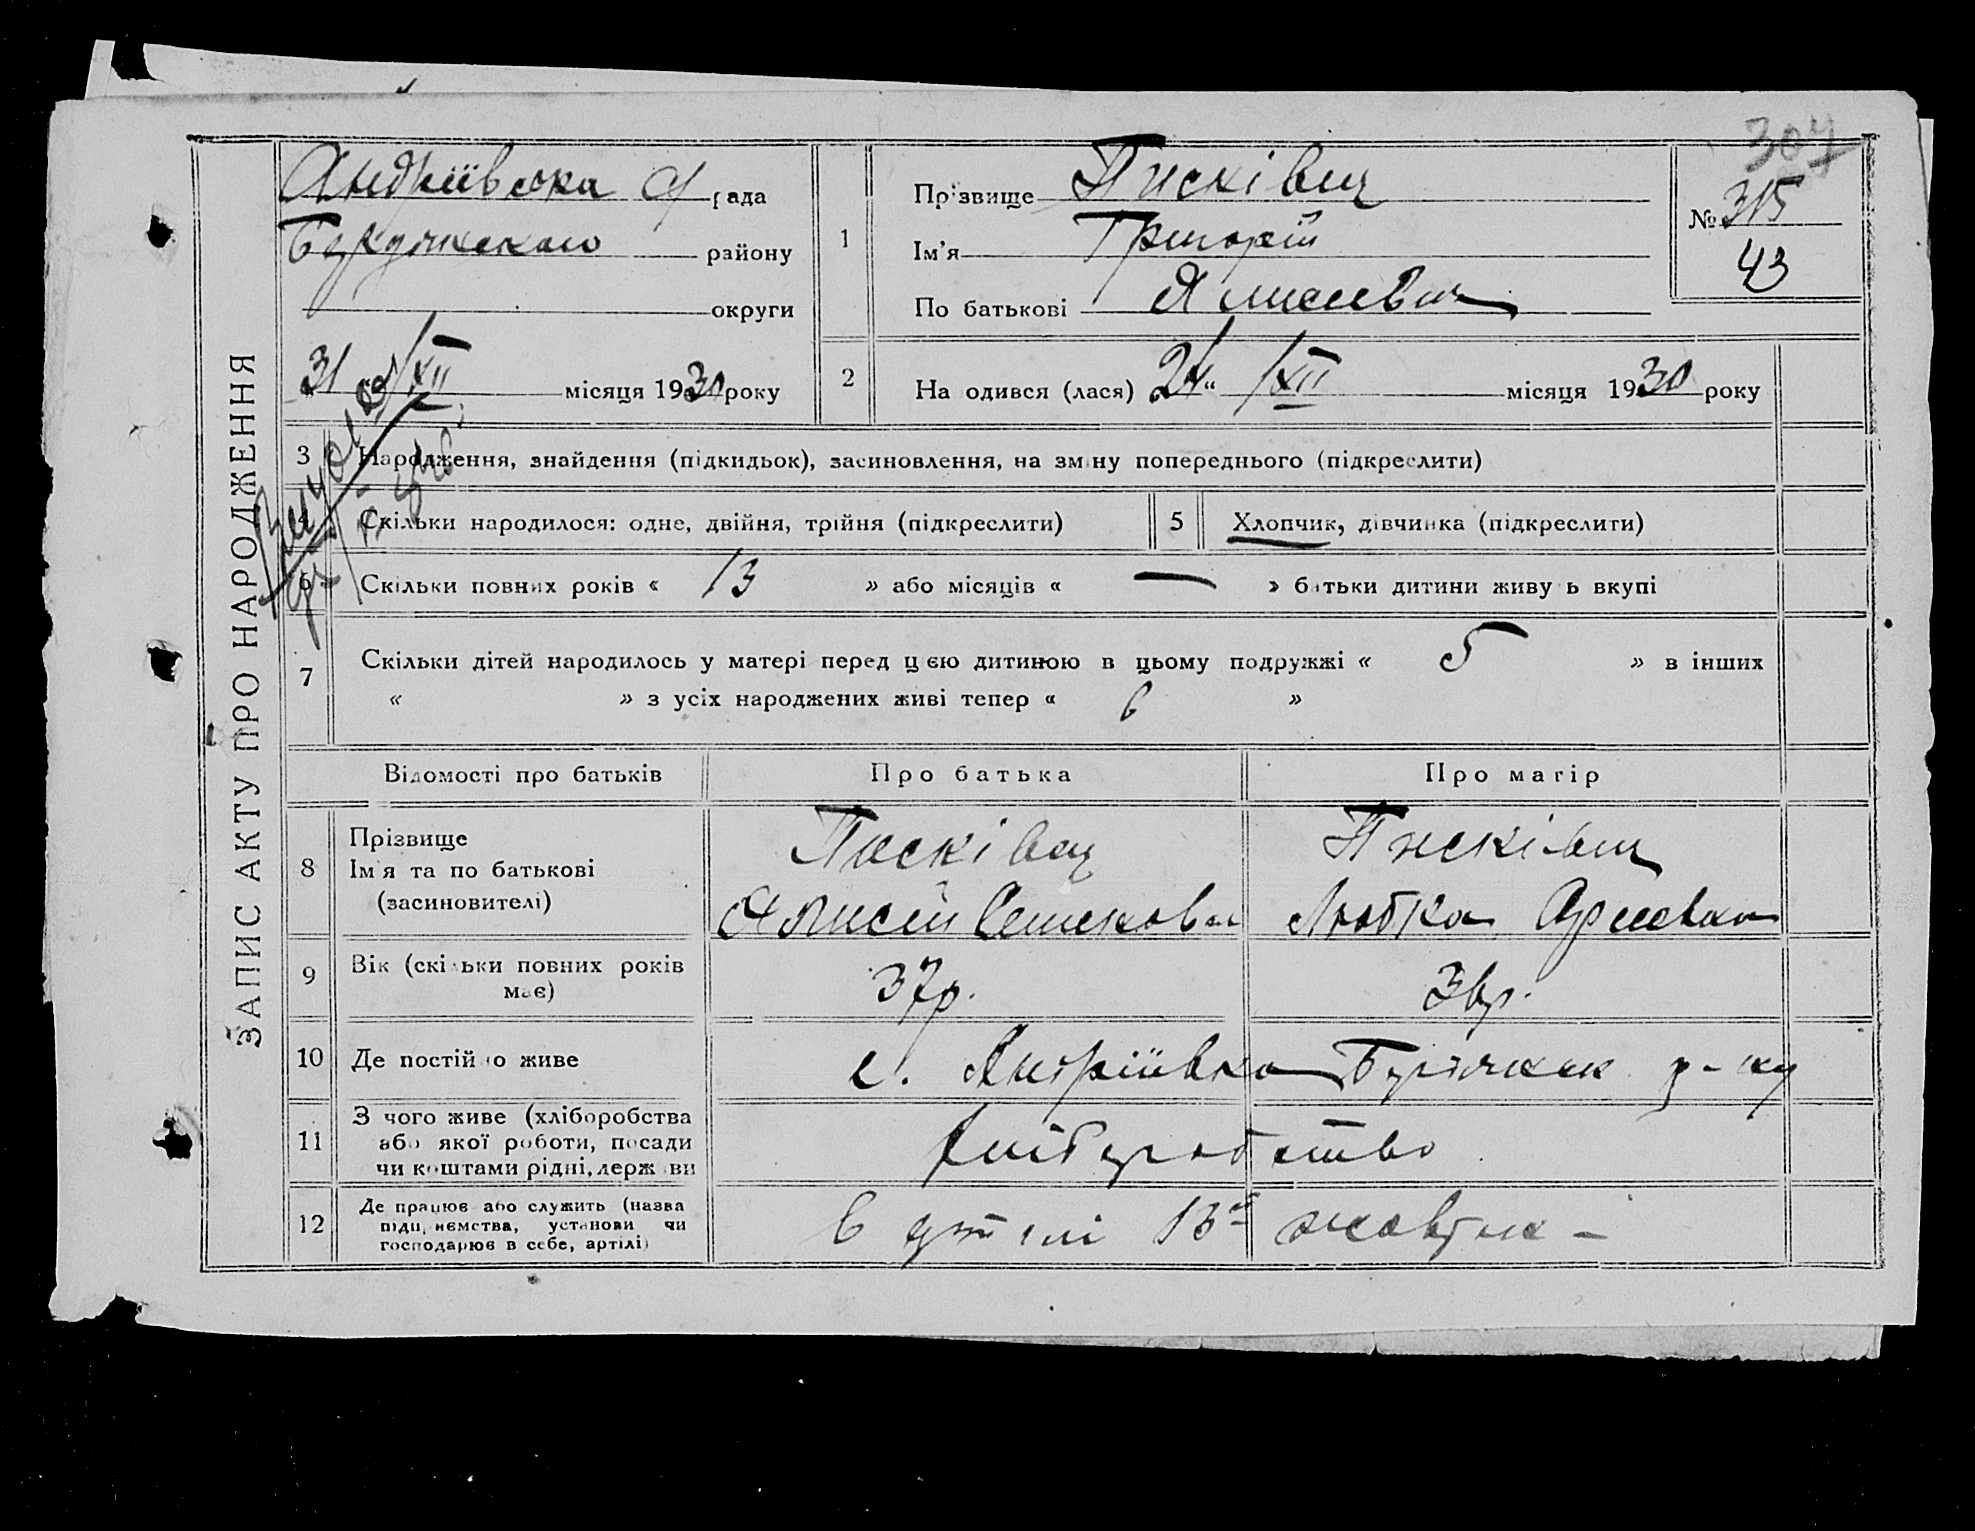 ЗАПИС АКТУ ПРО НАРОДЖЕННЯ
304
Андріївська с/рада
району
округи
31/XII місяця 1930 року
1
Прізвище Писківец
Ім'я Григорій
По батькові
№ 315
43
2
На одився (лася) 24 " /XII місяця 1930 року
3 Народження, знайдення (підкидьок), засиновлення, на зміну попереднього (підкреслити)
Скільки народилося: одне, двійня, трійня (підкреслити)
5 Хлопчик, дівчинка (підкреслити)
6 Скільки повних років « 13 » або місяців « — » батьки дитини живу ь вкупі
7 Скільки дітей народилось у матері перед цією дитиною в цьому подружжі « 5 » в інших
« » з усіх народжених живі тепер « 6 »
Відомості про батьків Про батька Про матір
8 Прізвище
Ім'я та по батькові
(засиновителі)
Писківец
Алисей
Писківец
Любка
9 Вік (скільки повних років
має)
37р.
36р.
10 Де постійно живе
с. Андріївка р-ну
11 З чого живе (хліборобства
або якої роботи, посади
чи коштами рідні, держ ви
Хліборобство
12 Де працює або служить (назва
підприємства, установи чи
господарює в себе, артілі)
В артілі 13 жовтня -